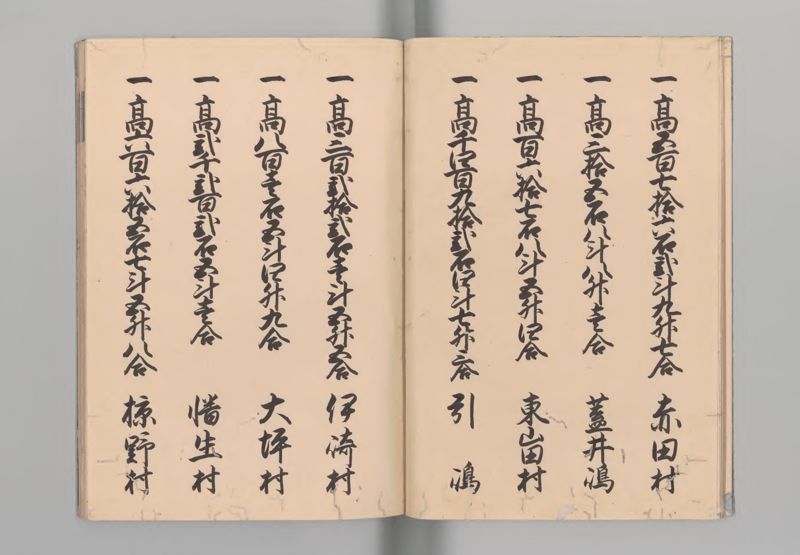 一高五百七拾六石弐斗九升七合 赤田村
一高二拾五石八斗八升壱合 蓋井嶋
一高百六拾七石八斗五升四合 東山田村
一高千四百九拾弐石四斗七升六合 引嶋
一高三百弐拾弐石壱斗五升五合 伊崎村
一高八百壱石五斗四升九合 大坪村
一高弐千弐百弐石五斗壱合 幡生村
一高六百六拾五石七斗五升八合 椋野村